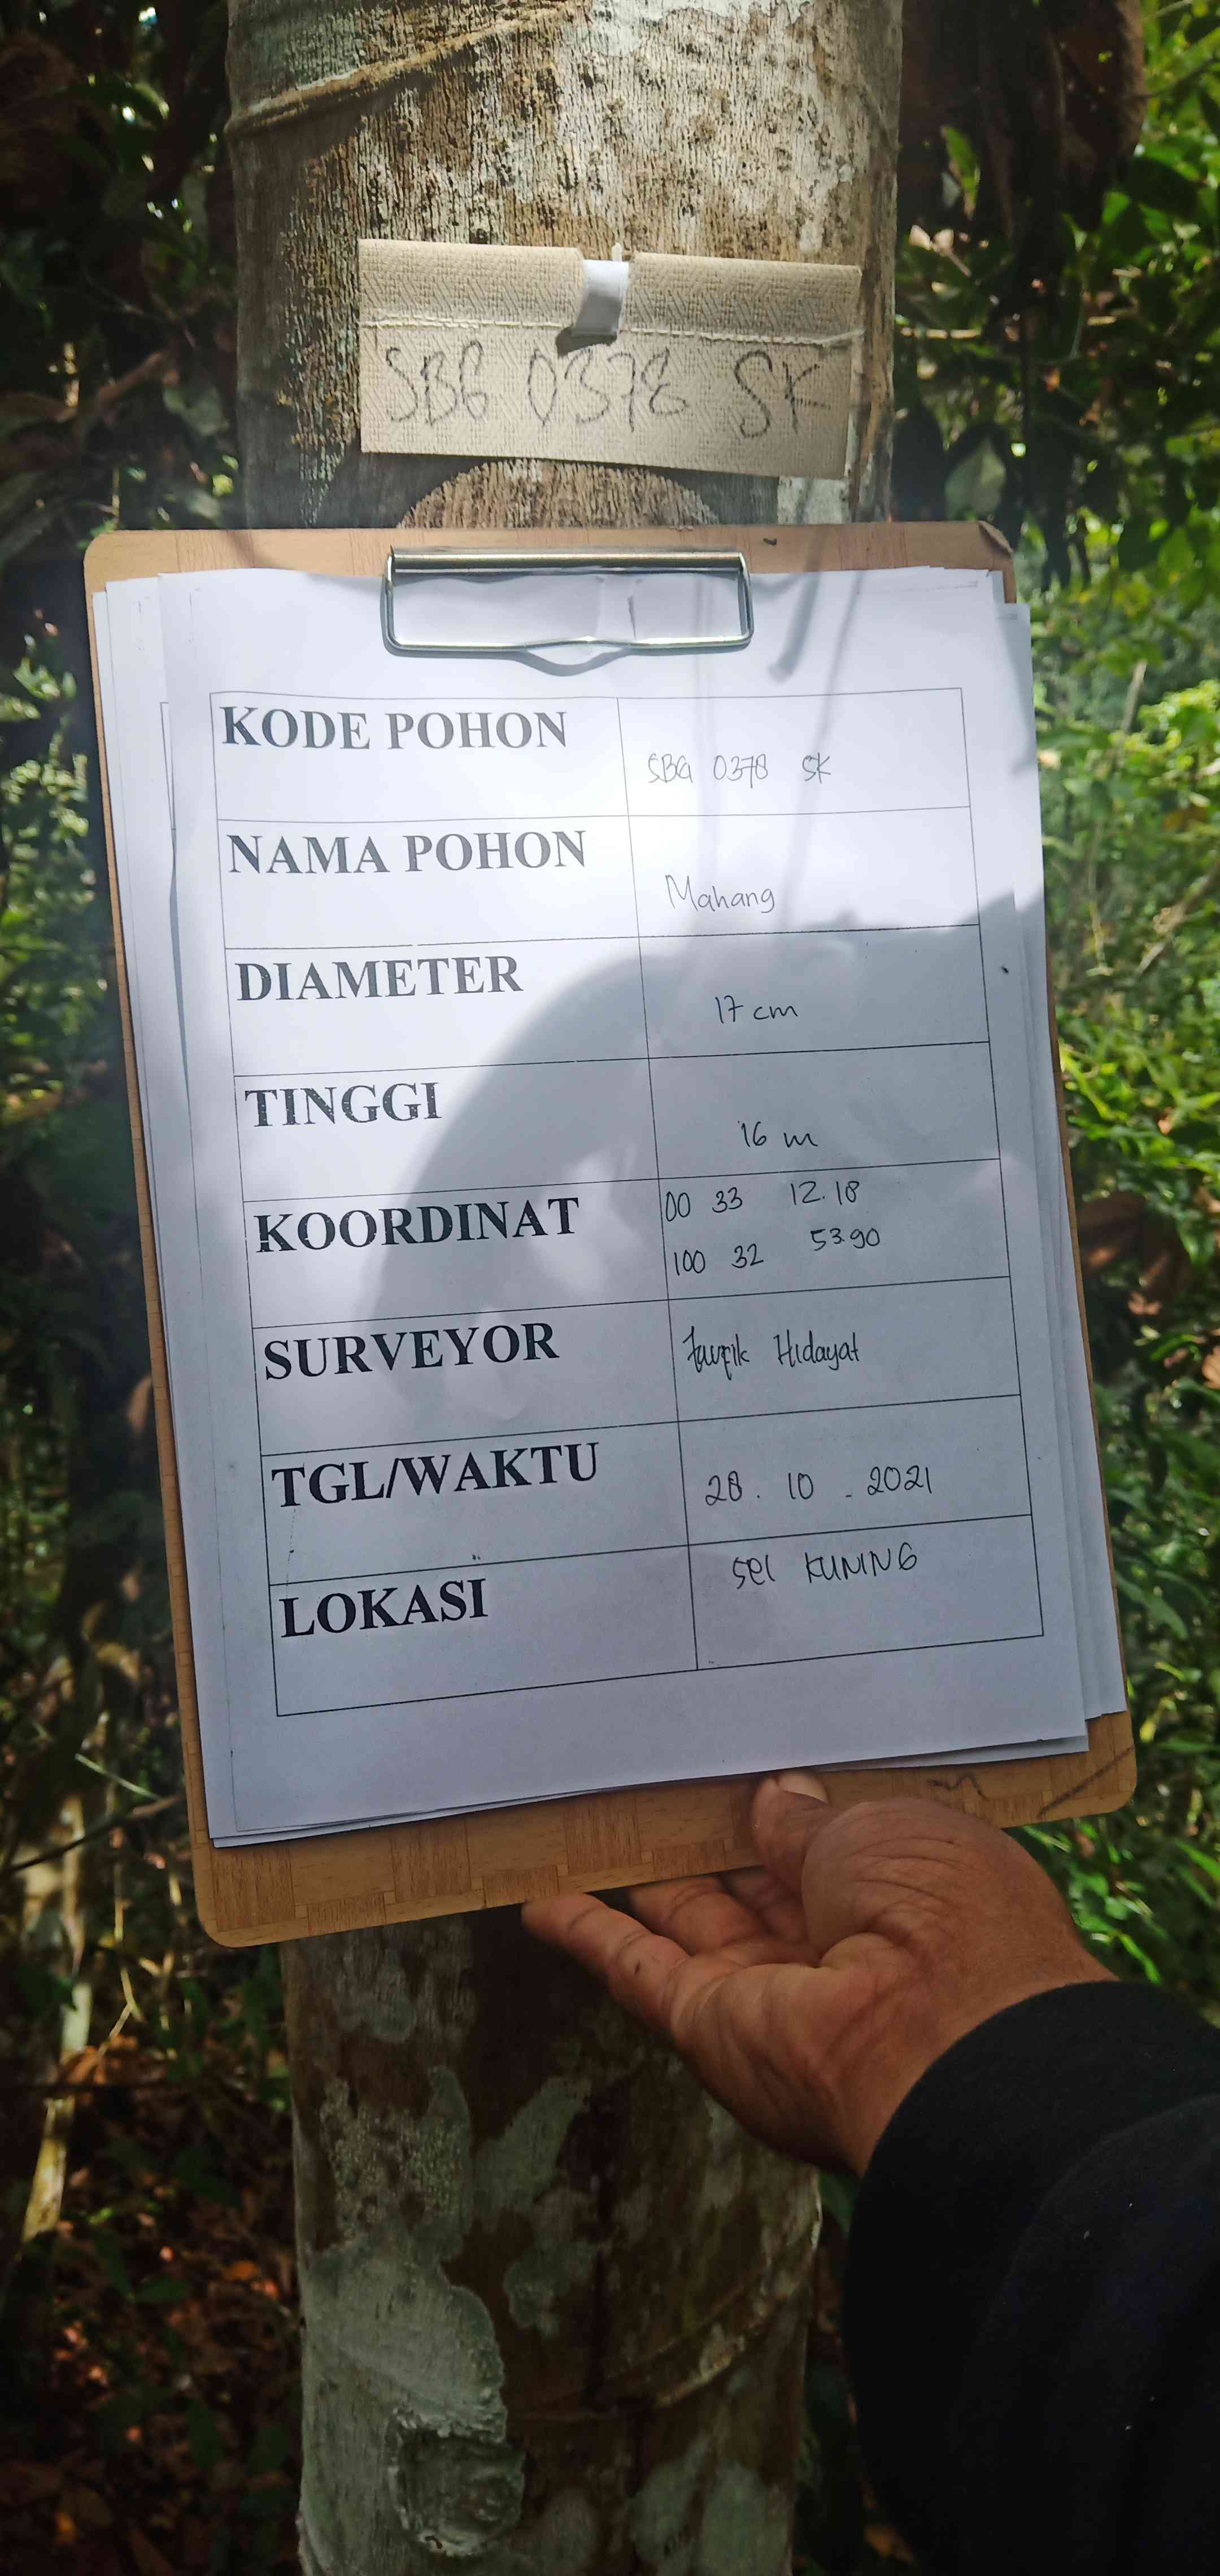 SBG 0378 SK
KODE POHON
SBG 0378 SK
NAMA POHON
Mahang
DIAMETER
17 cm
TINGGI
16 m
KOORDINAT
00 33 12.18
100 32 53.90
SURVEYOR
Taufik Hidayat
TGL/WAKTU
28. 10 - 2021
LOKASI
Sei KUNING